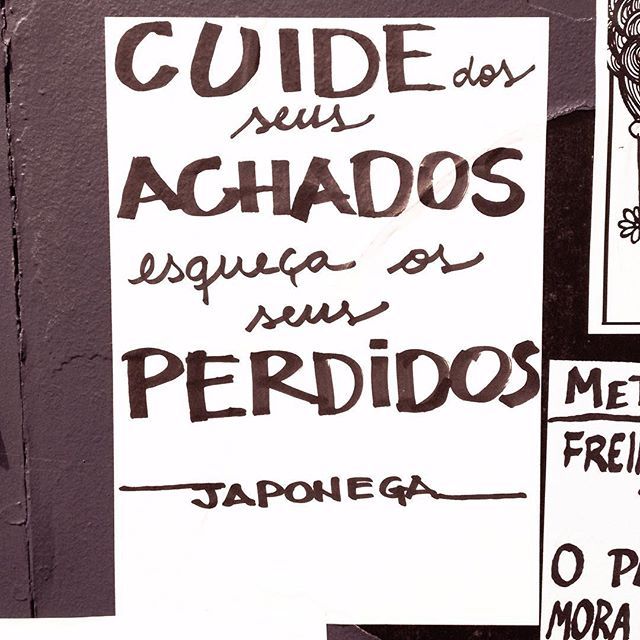 CUIDE dos
seus
ACHADOS
esqueça os
seus
PERDiDOS
JAPONEGA
O
MORA